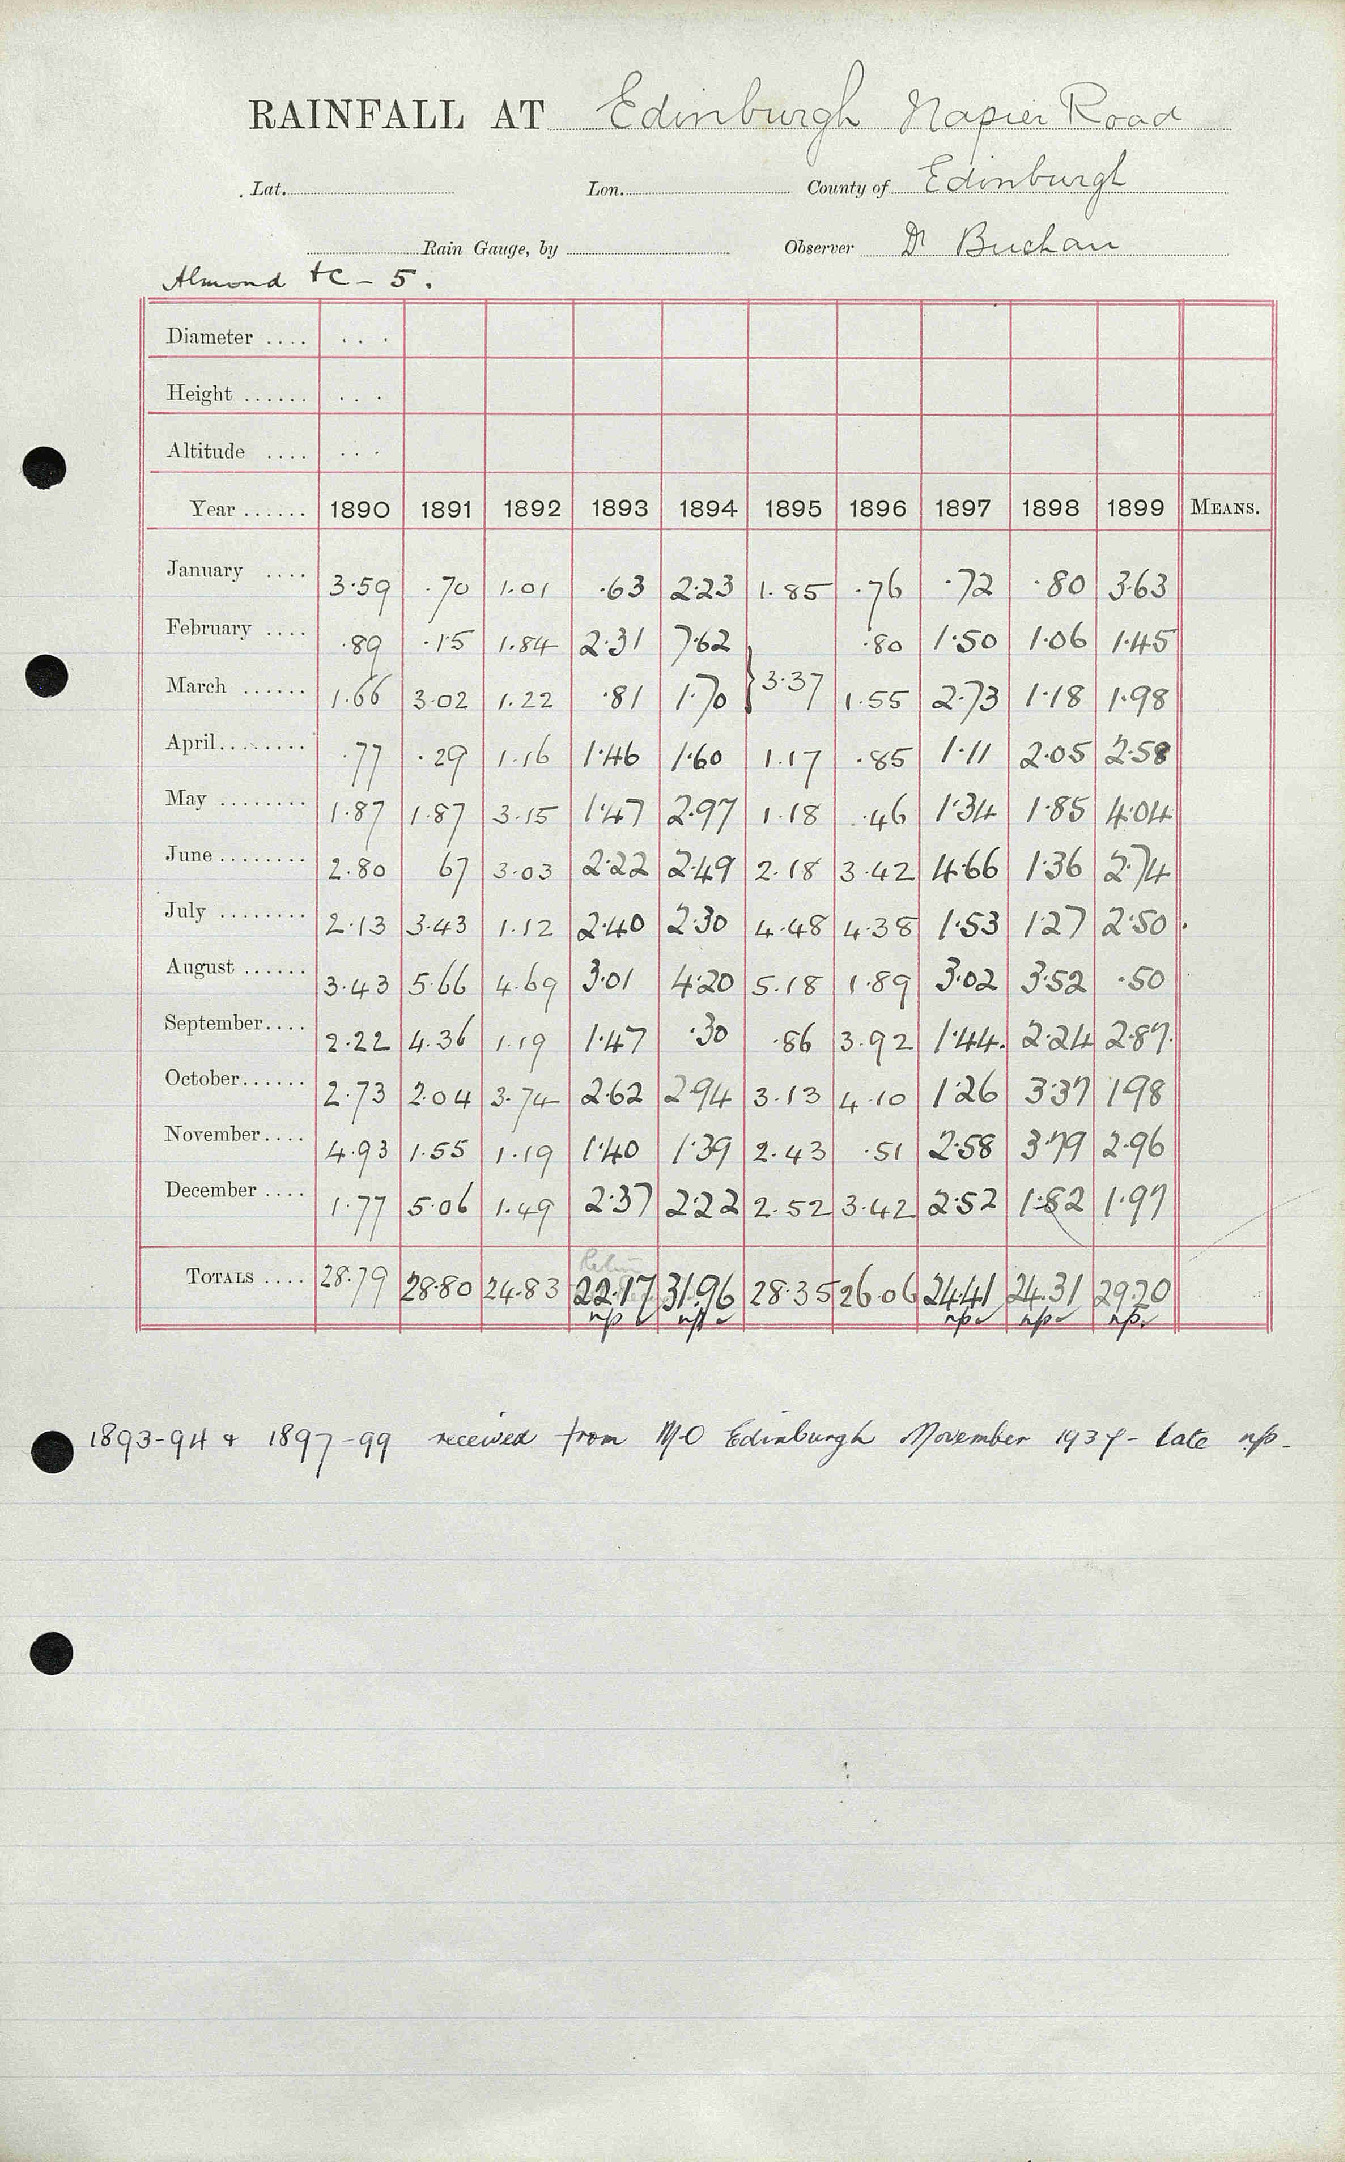 RAINFALL AT Edinburgh Napier Road
Lat. Lon. County of Edinburgh
Rain Gauge, by Observer Dr Buchan
Almond &c - 5.
Diameter .... ...
Height ...... ...
Altitude .... ...
Year ...... 1890 1891 1892 1893 1894 1895 1896 1897 1898 1899 MEANS.
January .... 3.59 .70 1.01 .63 2.23 1.85 .76 .72 .80 3.63
February .... .89 .15 1.84 2.31 7.62 .80 1.50 1.06 1.45
March ...... 1.66 3.02 1.22 .81 1.70 } 3.37 1.55 2.73 1.18 1.98
April........ .77 .29 1.16 1.46 1.60 1.17 .85 1.11 2.05 2.58
May ........ 1.87 1.87 3.15 1.47 2.97 1.18 .46 1.34 1.85 4.04
June ........ 2.80 67 3.03 2.22 2.49 2.18 3.42 4.66 1.36 2.74
July ........ 2.13 3.43 1.12 2.40 2.30 4.48 4.38 1.53 1.27 2.50
August ...... 3.43 5.66 4.69 3.01 4.20 5.18 1.89 3.02 3.52 .50
September.... 2.22 4.36 1.19 1.47 .30 .86 3.92 1.44 2.24 2.87
October...... 2.73 2.04 3.74 2.62 2.94 3.13 4.10 1.26 3.37 1.98
November.... 4.93 1.55 1.19 1.40 1.39 2.43 .51 2.58 3.79 2.96
December .... 1.77 5.06 1.49 2.37 2.22 2.52 3.42 2.52 1.82 1.97
TOTALS .... 28.79 28.80 24.83 22.17 31.96 28.35 26.06 24.41 24.31 29.20
np ✓ np ✓ np ✓ np ✓ np ✓
1893-94 & 1897-99 received from M.O Edinburgh November 1937 - late np -